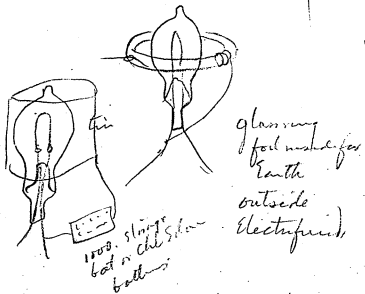 tin
glass ring
foil inside for
Earth
outside
Electrified
1000. strings
bat or Chl Silver
battery